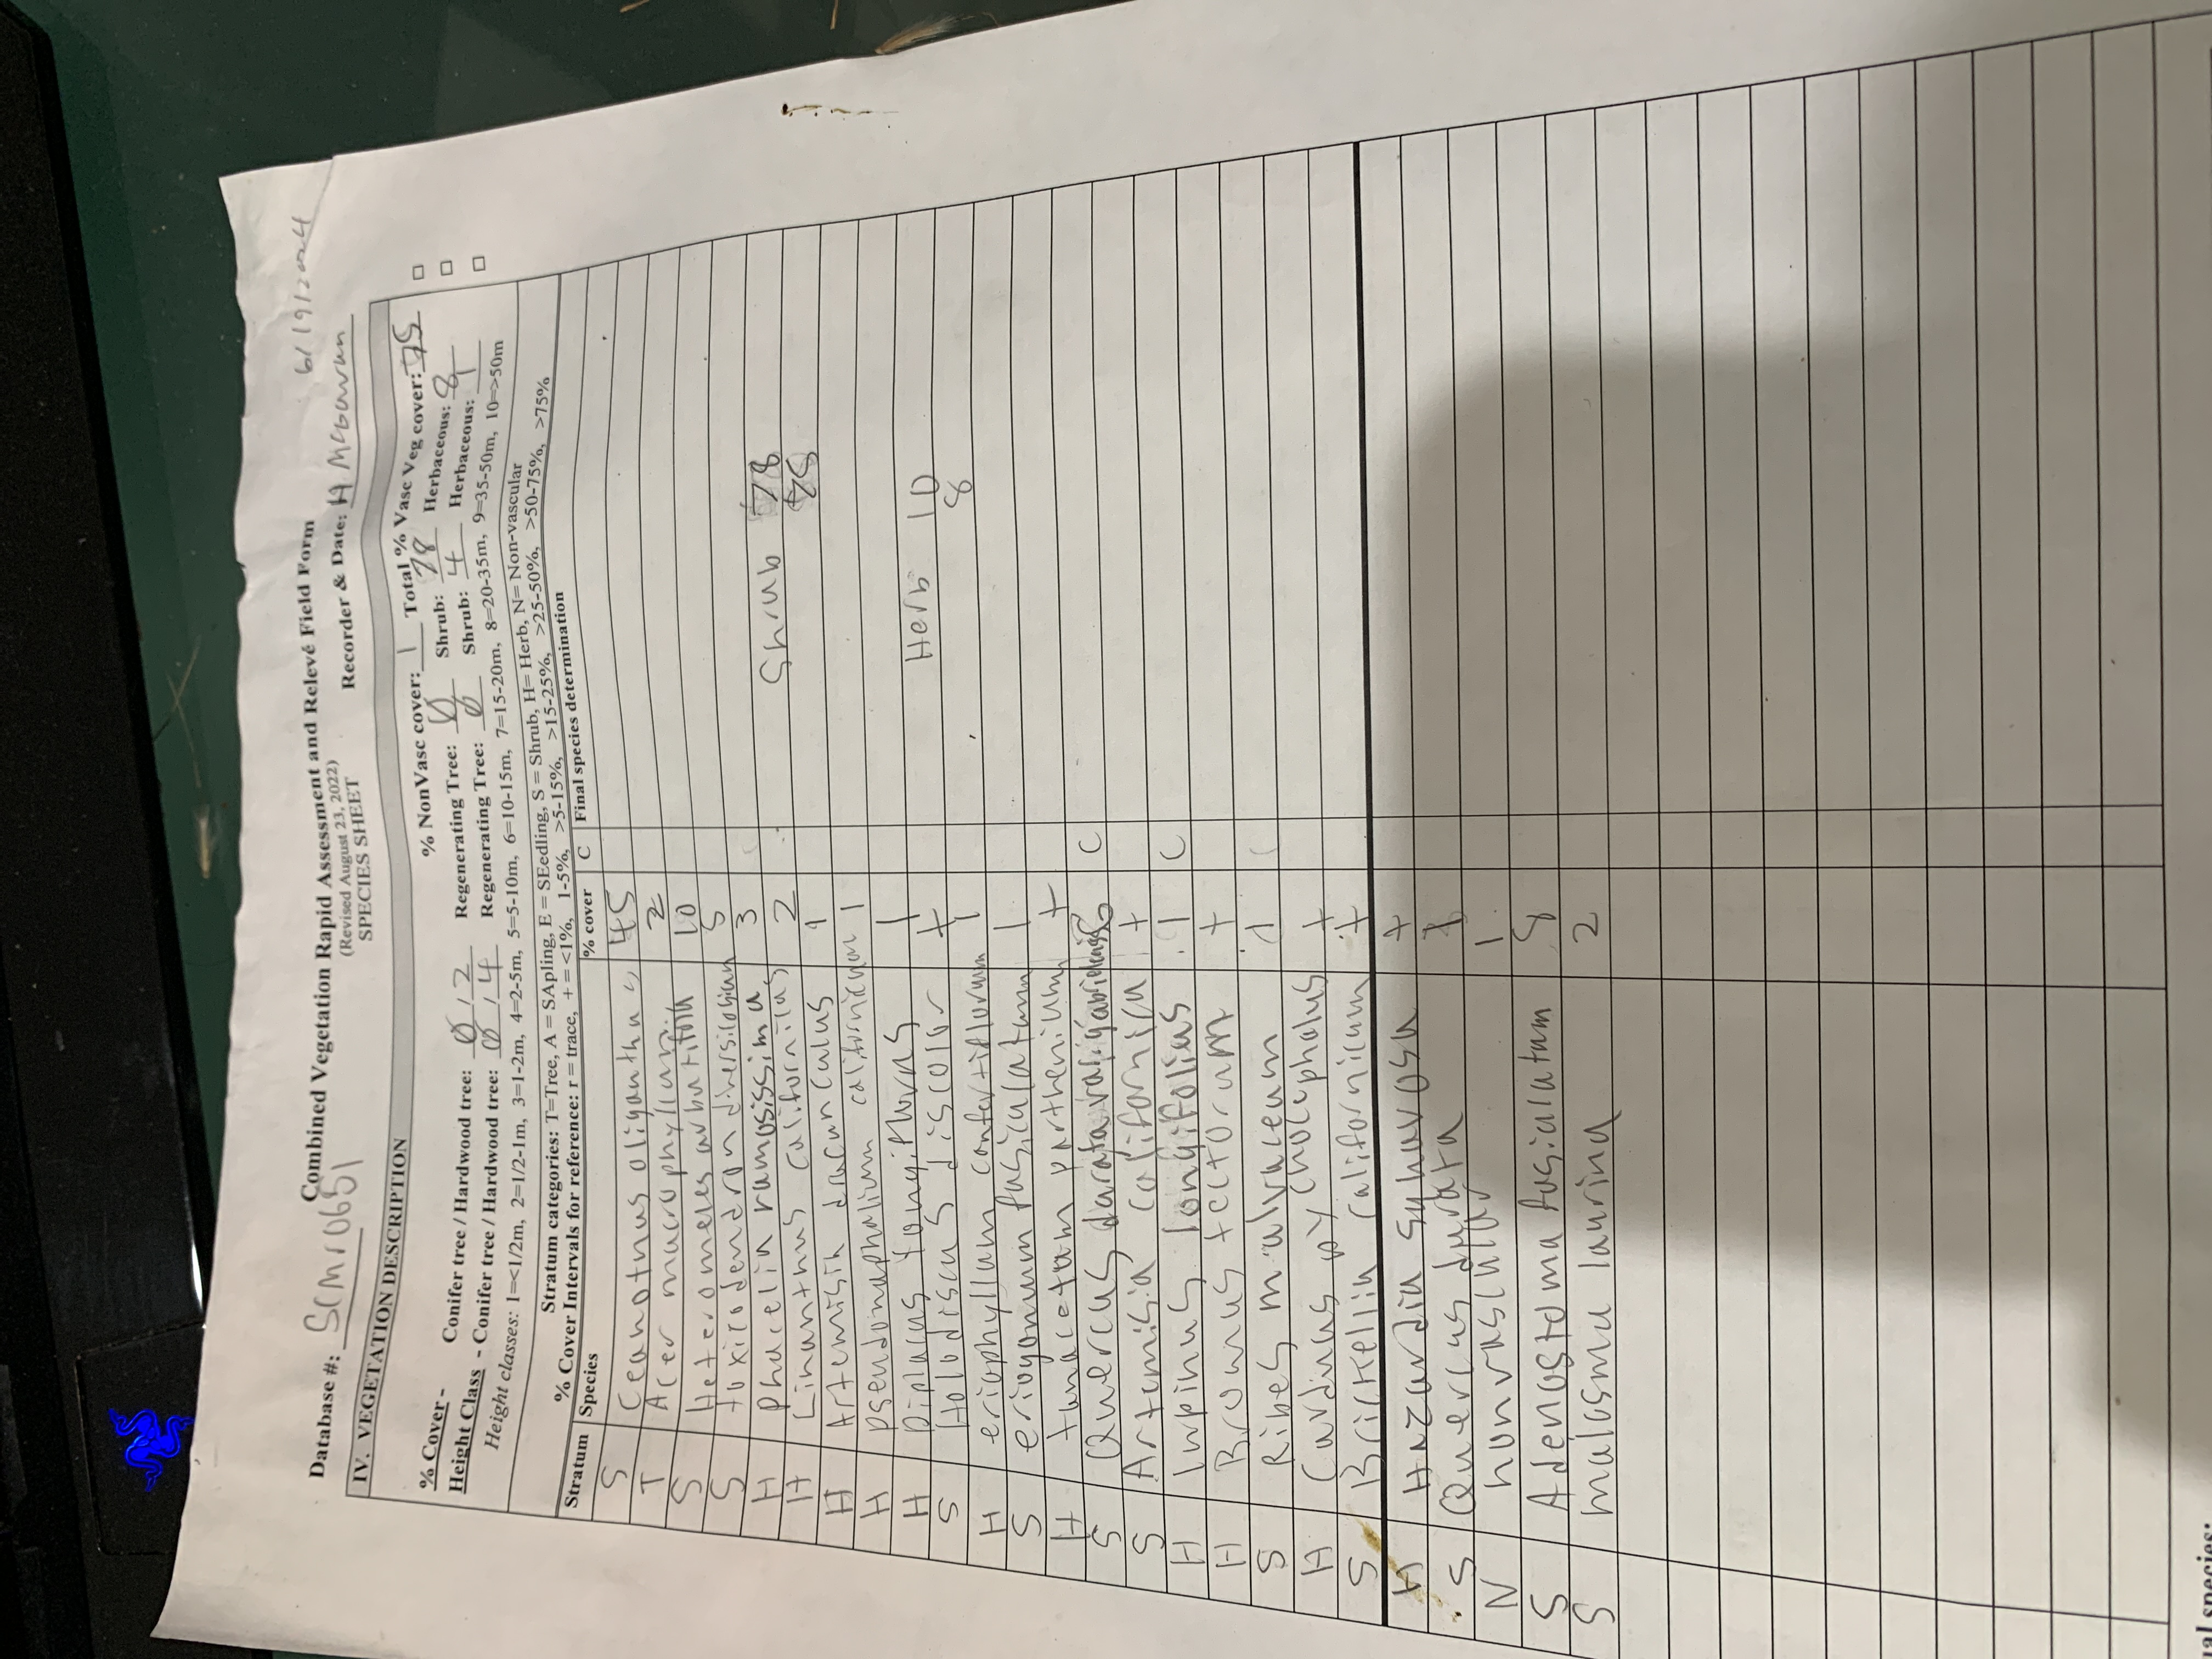 6/19/2024
Combined Vegetation Rapid Assessment and Relevé Field Form
(Revised August 23, 2022)
Database #: SCMr0651 SPECIES SHEET Recorder & Date: H McGowan
IV. VEGETATION DESCRIPTION
% NonVasc cover: 1 Total % Vasc Veg cover: 75
% Cover - Conifer tree / Hardwood tree: 0 / 2 Regenerating Tree: 0 Shrub: 78 Herbaceous: 8
Height Class - Conifer tree / Hardwood tree: 0 / 4 Regenerating Tree: 0 Shrub: 4 Herbaceous: 1
Height classes: 1=<1/2m, 2=1/2-1m, 3=1-2m, 4=2-5m, 5=5-10m, 6=10-15m, 7=15-20m, 8=20-35m, 9=35-50m, 10=>50m
Stratum categories: T=Tree, A = SApling, E = SEedling, S = Shrub, H= Herb, N= Non-vascular
% Cover Intervals for reference: r = trace, + = <1%, 1-5%, >5-15%, >15-25%, >25-50%, >50-75%, >75%
Stratum Species % cover C Final species determination
S Ceanothus oliganthus 45
T Acer macrophyllum 2
S Heteromeles arbutifolia 10
S toxicodendron diversilobum 5
H phacelia ramosissima 3 Shrub 78
H Linanthus californicus 2 75
H Artemisia dracunculus 1
H pseudognaphalium californicum 1
H Diplacus longiflorus 1 Herb 10
S Holodiscus discolor + 8
H eriophyllum confertiflorum 1
S eriogonum fasciculatum 1
H tanacetum parthenium +
S Quercus C
S Artemisia californica +
H lupinus longifolius 1 C
H Bromus tectorum +
S Ribes malvaceum 1 C
H Carduus pycnocephalus +
S Brickellia californicum +
H Hazardia squarosa +
S Quercus durata
N nonvascular 1
S Adenostoma fasiculatum
S malosma laurina 2